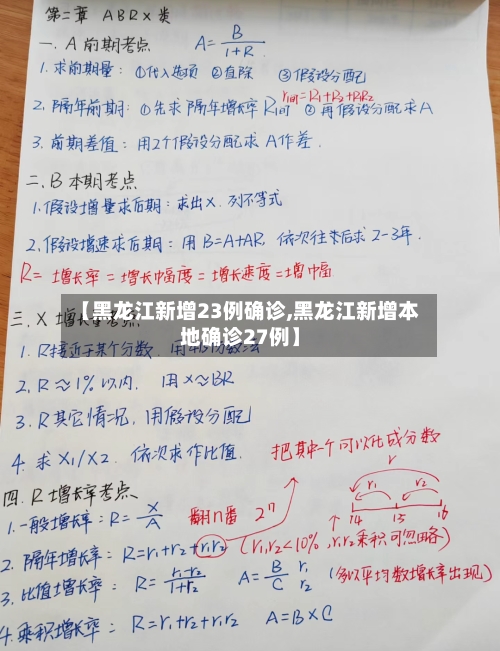 第二章 ABRX类
一. A前期考点 A=B/1+R
1. 求前期量: ①代入选项 ②直除 ③假设分配
r间=R1+R2+R1R2
2. 隔年前期: ①先求隔年增长率R间 ②再假设分配求A
3. 前期差值: 用2个假设分配求A作差.
二. B本期考点
1. 假设增量求后期: 求出X. 列不等式
2. 假设增速求后期: 用B=A+AR. 依次往后求2-3年.
R= 增长率 = 增长幅度 = 增长速度 = 增幅
【黑龙江新增23例确诊,黑龙江新增本
地确诊27例】
三. X 增长量
1. R接近于某个分数.
2. R≈1%以内. 用X≈BR
3. R其它情况, 用假设分配
4. 求X1/X2. 依次求作比值.
把其中一个可以化成分数
四. R增长率考点
1. 一般增长率: R=X/A 翻n番 2ⁿ
r r1 r2
14 15 16
2. 隔年增长率: R=r1+r2+r1r2 (r1,r2<10%, r1r2乘积可忽略)
3. 比值增长率: R=r1-r2/1+r2 A=B/C r1 r2 (多以平均数增长率出现)
4. 乘积增长率: R=r1+r2+r1r2 A=B×C